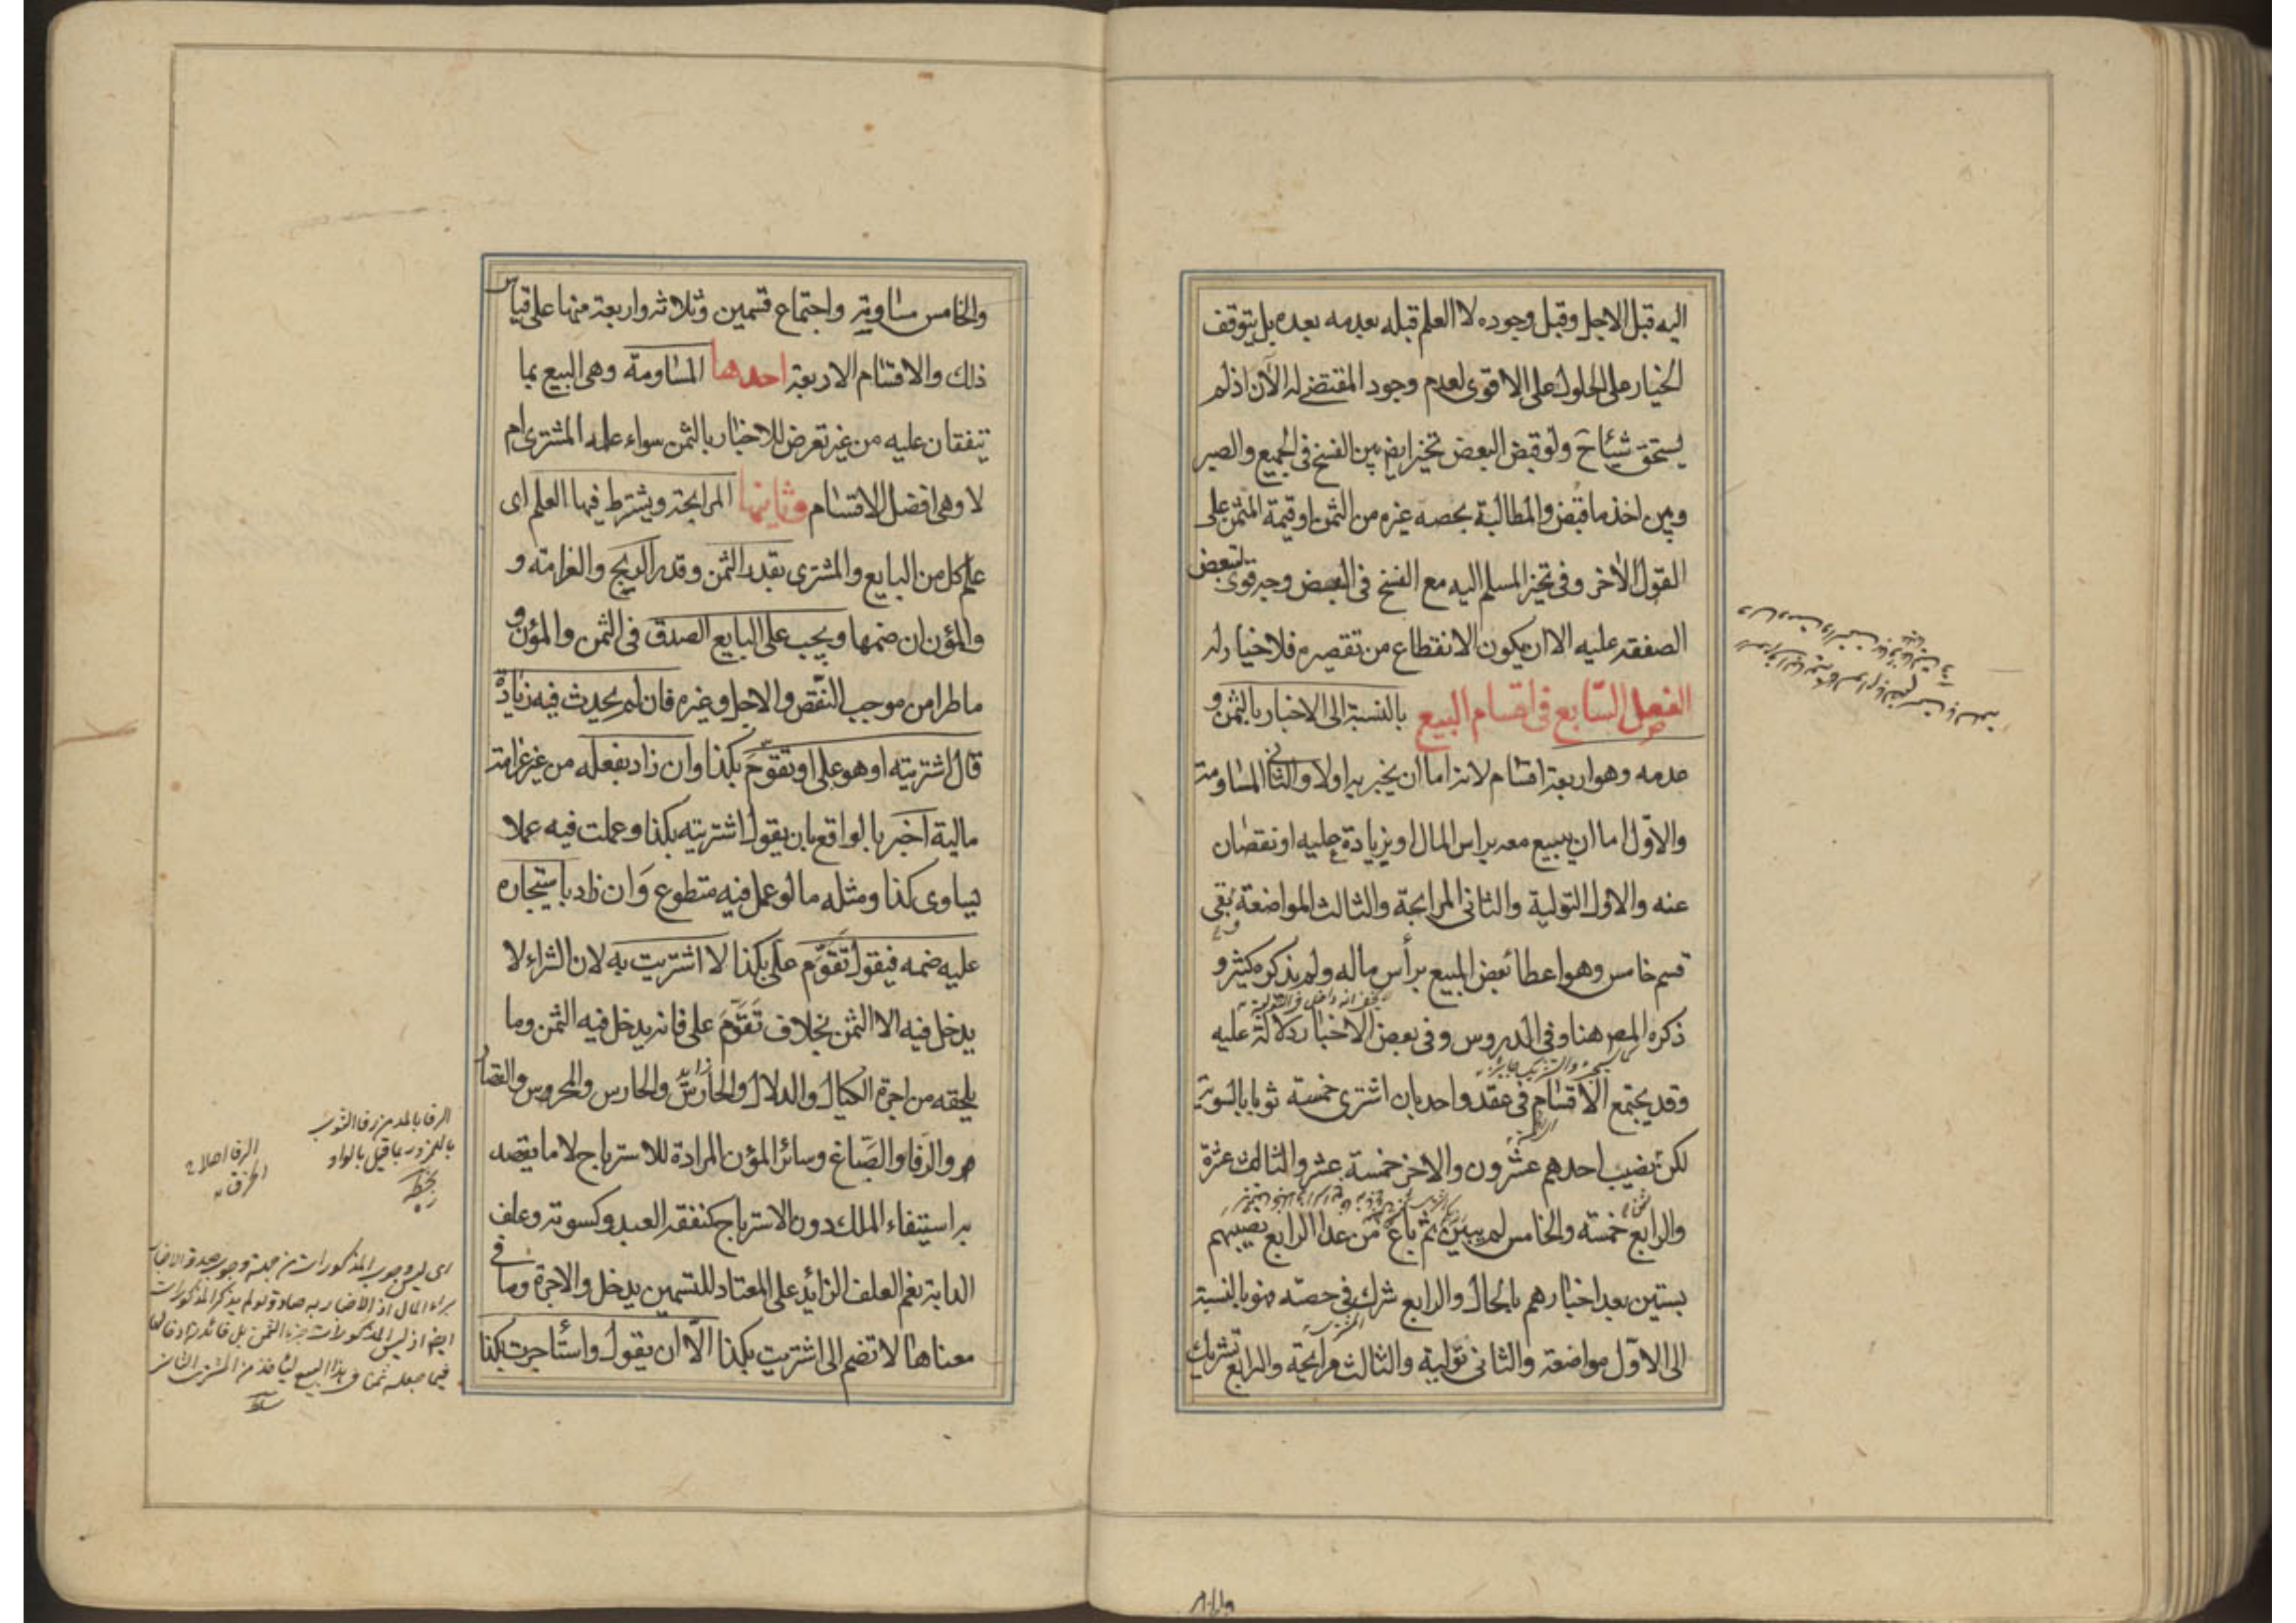 اليه قبل الاجل وقبل وجوده لا العلم قبله بعدمه بعده بل يتوقف
الخيار على الحلول على الاقوى لعدم وجود المقتضى له الآن اذ لم
يستحق شيئا ح ولو قبض البعض تخير ايض بين الفسخ فى الجميع والصبر
وبين اخذ ما قبض والمطالبة بحصه غيره من الثمن او قيمة المثمن على
القول الاخر وفى تخير المسلم اليه مع الفسخ فى البعض وجه قوى لتبعض
الصفقه عليه الا ان يكون الانقطاع من تقصيره فلا خيار له
الفصل السّابع فى اقسام البيع بالنسبة الى الاخبار بالثمن و
عدمه وهو اربعة اقسام لانه اما ان يخبر به اولا والثانى المساومة
والاوّل اما ان يبيع معه براس المال او بزيادة عليه او نقصان
عنه والاول التولية والثانى المرابحة والثالث المواضعة بقى
قسم خامس وهو اعطا بعض المبيع برأس ماله ولم يذكره كثير و
ذكره المص هنا وفى الدروس وفى بعض الاخبار دلالة عليه
وقد يجتمع الاقسام فى عقد واحد بان اشترى خمسة ثوبا بالسوية
لكن نصيب احدهم عشرون والاخر خمسة عشر والثالث عشرة
والرابع خمسة والخامس لم يبين ثم باع من عدا الرابع نصيبهم
بستين بعد اخبارهم بالحال والرابع شرك فى حصّه فهو بالنسبة
الى الاوّل مواضعة والثانى تولية والثالث مرابحة والرابع تشريك
والخامس مساومة واجتماع قسمين وثلاثه واربعة منها على قياس
ذلك والاقسام الاربعة احدها المساومة وهى البيع بما
يتفقان عليه من غير تعرض للاخبار بالثمن سواء علمه المشترى ام
لا وهى افضل الاقسام وثانيها المرابحة ويشترط فيها العلم اى
علم كل من البايع والمشترى بقدر الثمن وقدر الربح والغرامه و
والمؤن ان ضمها ويجب على البايع الصدق فى الثمن والمؤن و
ما طرا من موجب النّقص والاجل وغيره فان لم يحدث فيه زيادة
قال اشتريته او هو على او تقوّم بكذا وان زاد بفعله من غير غرامة
مالية اخبر بالواقع بان يقول اشتريته بكذا وعملت فيه عملا
يساوى كذا ومثله ما لو عمل فيه متطوع وان زاد باستيجاره
عليه ضمه فيقول تقوّم على بكذا لا اشتريت به لان الشراء لا
يدخل فيه الا الثمن بخلاف تقوّم على فانه يدخل فيه الثمن وما
يلحقه من اجرة الكيال والدلال والحارس والحارس والمحروس والقصار
والرفا والصّباغ وسائر المؤن المرادة للاسترباح لا ما يقصد
به استيفاء الملك دون الاسترباح كنفقه العبد وكسوته وعلف
الدابة نعم العلف الزائد على المعتاد للتسمين يدخل والاجرة وما فى
معناها لا تضم الى اشتريت بكذا الّا ان يقول واستاجرت بكذا
الرفا بالمد من رفا الثوب
بالهمزه ربما قيل بالواو